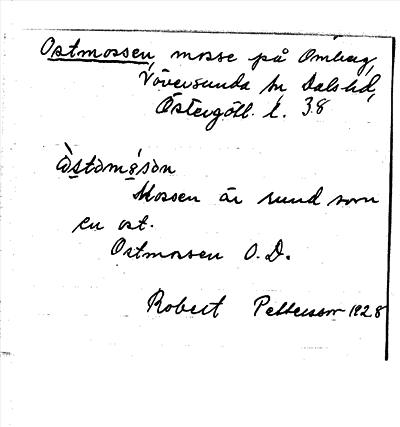 Ostmossen, mosse på Omberg,
Väversunda sn, Dals hd,
Östergötl. l. 38
òstamósən
Mossen är rund som
en ost.
Ostmossen O.D.
Robert Pettersson 1928